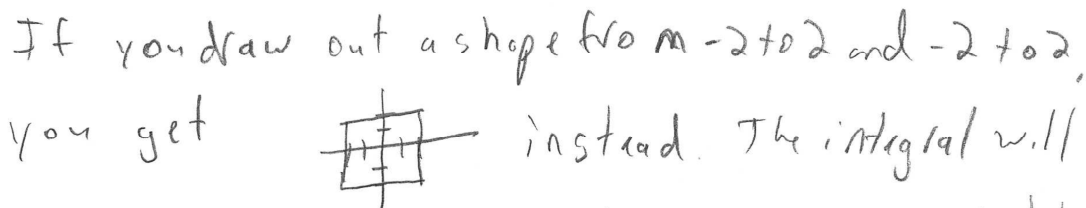 If you draw out a shape from -2 to 2 and -2 to 2,
you get instead. The integral will